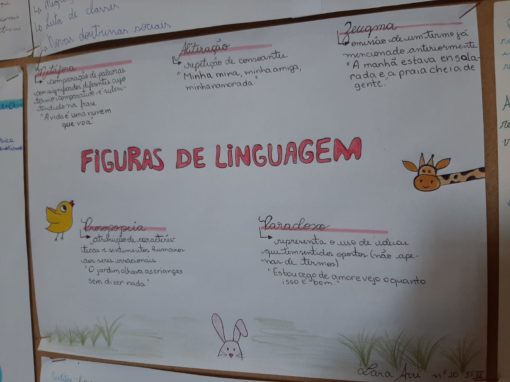 → Luta de classes
→ Novas doutrinas sociais
Metáfora
↳ comparação de palavras
com significados diferentes cujo
termo comparativo é suben-
tendido na frase
"A vida é uma nuvem
que voa"
Aliteração
↳ repetição de consoantes
"Minha mina, minha amiga,
minha namorada"
Zeugma
↳ omissão de um termo já
mencionado anteriormente
"A manhã estava ensola-
rada e a praia cheia de
gente.
FIGURAS DE LINGUAGEM
Prosopopeia
↳ atribuição de caracterís-
ticas e sentimentos humanos
aos seres irracionais
"O jardim olhava as crianças
sem dizer nada"
Paradoxo
↳ representa o uso de ideias
que tem sentidos opostos (não ape-
nas de termos)
"Estou cego de amor e vejo o quanto
isso é bom"
Lara
nº 20